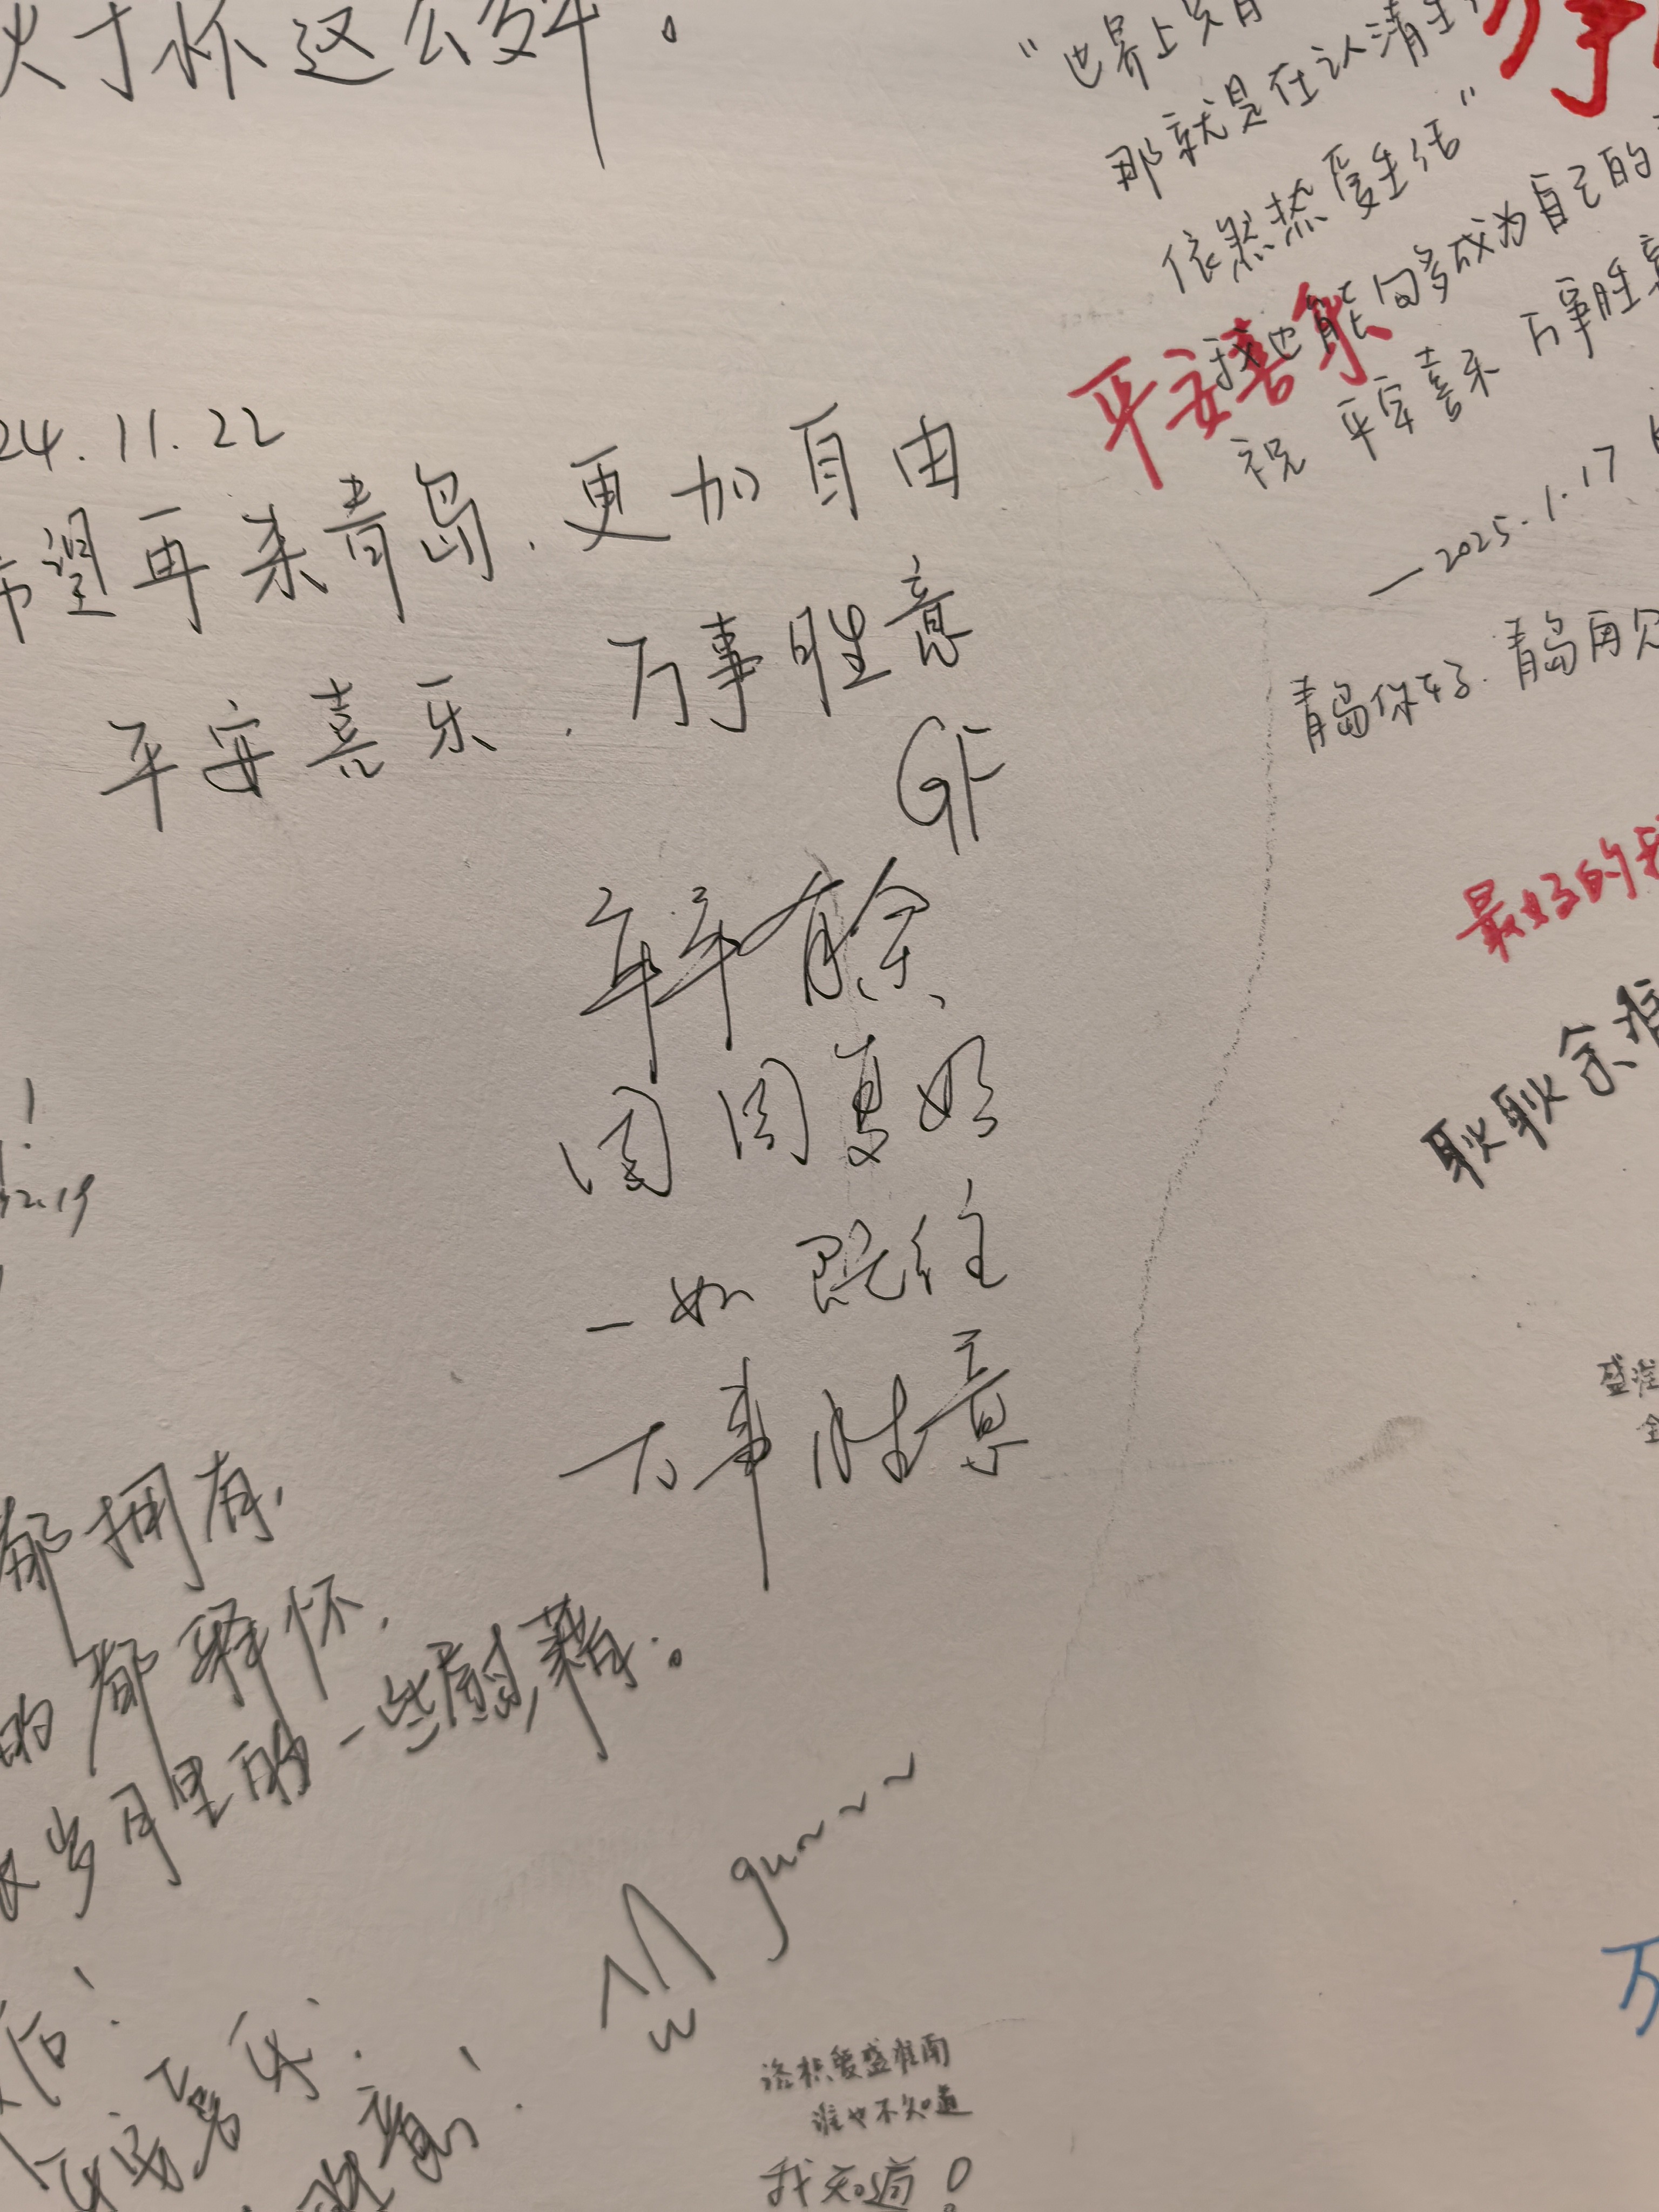 于你这么多年。
"世界上只有
那就是在认清生
依然热爱生活"
我也能句多成为自己的
祝 平安喜乐 万事胜意
—2025.1.17
平安喜乐
青岛你好.青岛再见
24.11.22
希望再来青岛.更加自由
平安喜乐.万事胜意
GF
年年有余
周周更好
一如既往
万事胜意
最好的我
耿耿余淮
12.19
都拥有.
的都释怀.
岁月里的一些慰藉.。
gu~~~
洛枳爱盛淮南
谁也不知道
我知道!
万